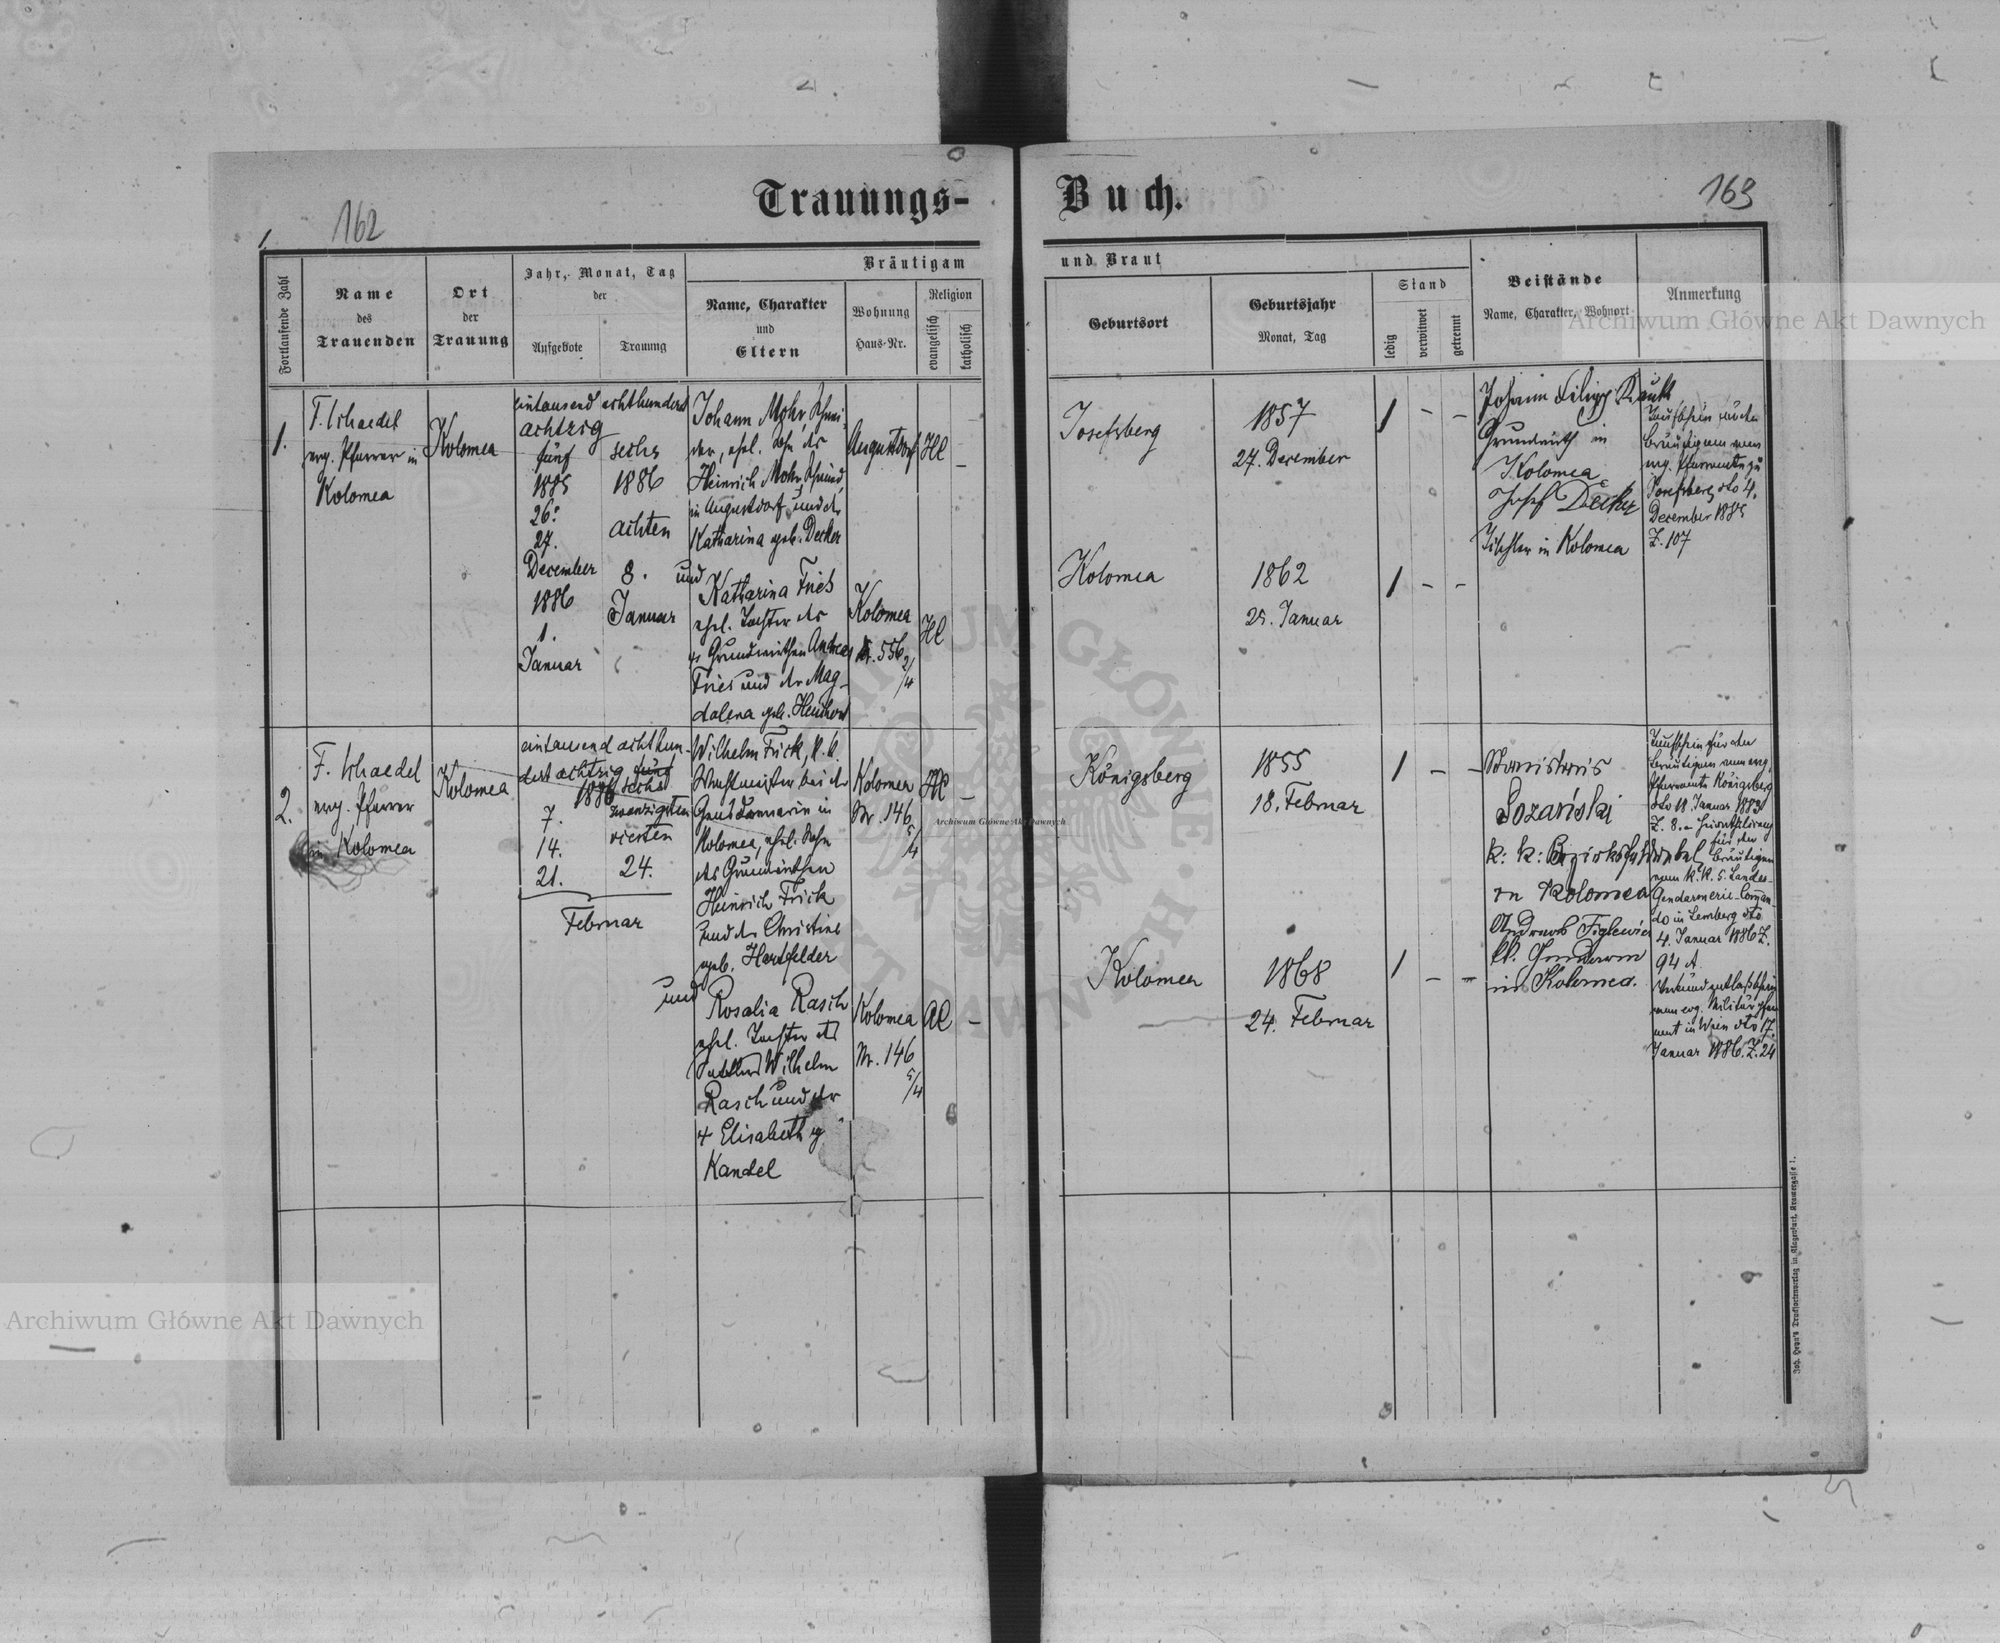 Trauungs-
Buch.
162
163
1
Fortlaufende Zahl
Name
des
Trauenden
Ort
der
Trauung
Jahr, Monat, Tag
der
Aufgebote
Trauung
Bräutigam
Name, Charakter
und
Eltern
Wohnung
Haus-Nr.
Religion
evangelisch
katholisch
und Braut
Geburtsort
Geburtsjahr
Monat, Tag
Stand
ledig
verwitwet
getrennt
Beistände
Name, Charakter, Wohnort
Anmerkung
1.
F. Schaedel
evg. Pfarrer in
Kolomea
Kolomea
eintausend achthundert
achtzig
fünf
1885
26.
27.
December
1886
1.
Januar
sechs
1886
achten
8.
Januar
Johann Mohr, Schnei-
der, ehel. Sohn des
Heinrich Mohr, Schmied
in Augustdorf und der
Katharina geb. Decker
und
Katharina Fries
ehel. Tochter des
Grundwirthen Andreas
Fries und der Mag-
dalena geb.
Augustdorf
HC
–
Kolomea
Nr. 556 2/4
HC
Josefsberg
1857
27. December
1 – –
Kolomea
1862
25. Januar
1 – –
Johann Filipp
Grundwirth in
Kolomea
Josef Decker
Tischler in Kolomea
Taufschein für den
Bräutigam vom
evg. Pfarramte zu
Josefsberg dto 4.
December 1885
Z. 107
2.
F. Schaedel
evg. Pfarrer
in Kolomea
Kolomea
eintausend achthun-
dert achtzig fünf
sechs
1886
7.
14.
21.
Februar
zwanzigsten
vierten
24.
Wilhelm Frick, k. k.
Wachtmeister bei der
Gensdarmerie in
Kolomea, ehel. Sohn
des Grundwirthen
Heinrich Frick
und der Christine
geb. Hartfelder
und
Rosalia Rasch
ehel. Tochter des
Sattlers Wilhelm
Rasch und der
+ Elisabeth g.
Kandel
Kolomea
Nr. 146 5/4
–
Kolomea
Nr. 146
5/4
AC –
Königsberg
1855
18. Februar
1 – –
Kolomea
1868
24. Februar
1 – –
Sozański
k: k: Bezirksfeldwebel
in Kolomea
in Kolomea.
Taufschein für den
Bräutigam vom evg.
Pfarramte Königsberg
Z. 8.
für den
Bräutigam
vom k. k. 5. Landes-
Gendarmerie-Comman-
do in Lemberg dto
4. Januar 1886 Z.
94 A.
vom evg. Militärpfar-
amt in Wien dto 17.
Januar 1886. Z. 24
Joh. Heyn's Drucksortenverlag in Klagenfurt, Kramergasse 1.
Archiwum Główne Akt Dawnych
Archiwum Główne Akt Dawnych
Archiwum Główne Akt Dawnych
ARCHIWUM GŁÓWNE AKT DAWNYCH